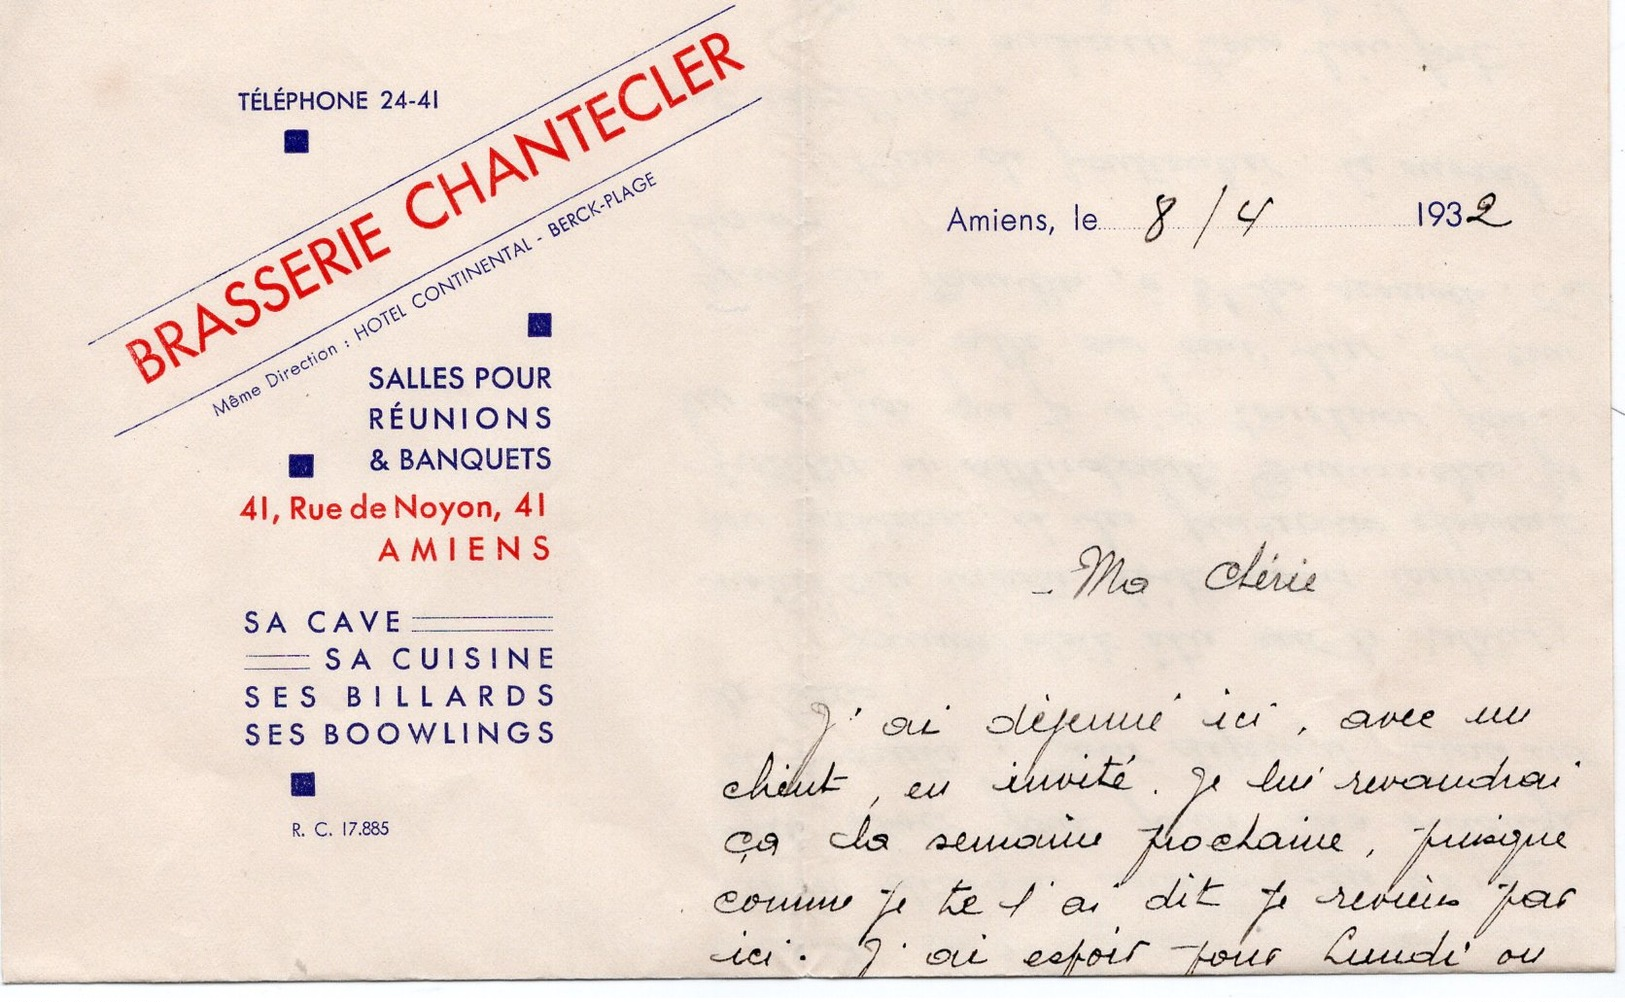 TÉLÉPHONE 24-41
BRASSERIE CHANTECLER
Même Direction : HOTEL CONTINENTAL - BERCK-PLAGE
SALLES POUR
RÉUNIONS
& BANQUETS
41, Rue de Noyon, 41
AMIENS
SA CAVE
SA CUISINE
SES BILLARDS
SES BOOWLINGS
R. C. 17.885
Amiens, le 8/4 1932
- Ma Chérie
J'ai déjeuné ici, avec un
client, en invité. Je lui revaudrai
ça la semaine prochaine, puisque
comme je te l'ai dit je reviens par
ici. J'ai espoir pour Lundi ou